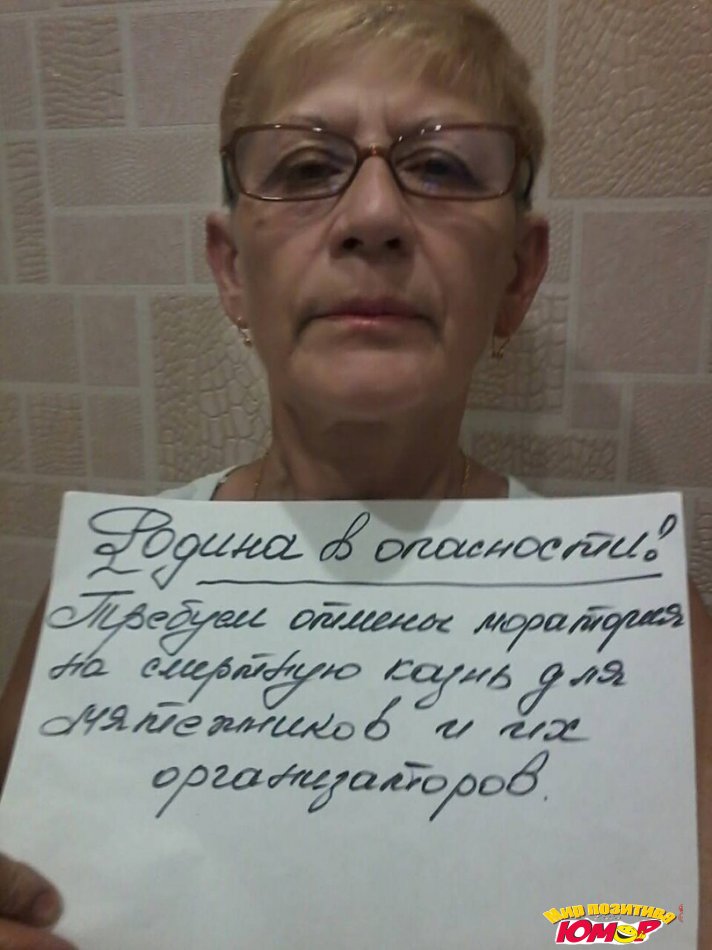 Родина в опасности!
Требуем отмены моратория
на смертную казнь для
мятежников и их
организаторов.
Мир позитива
ЮМОР